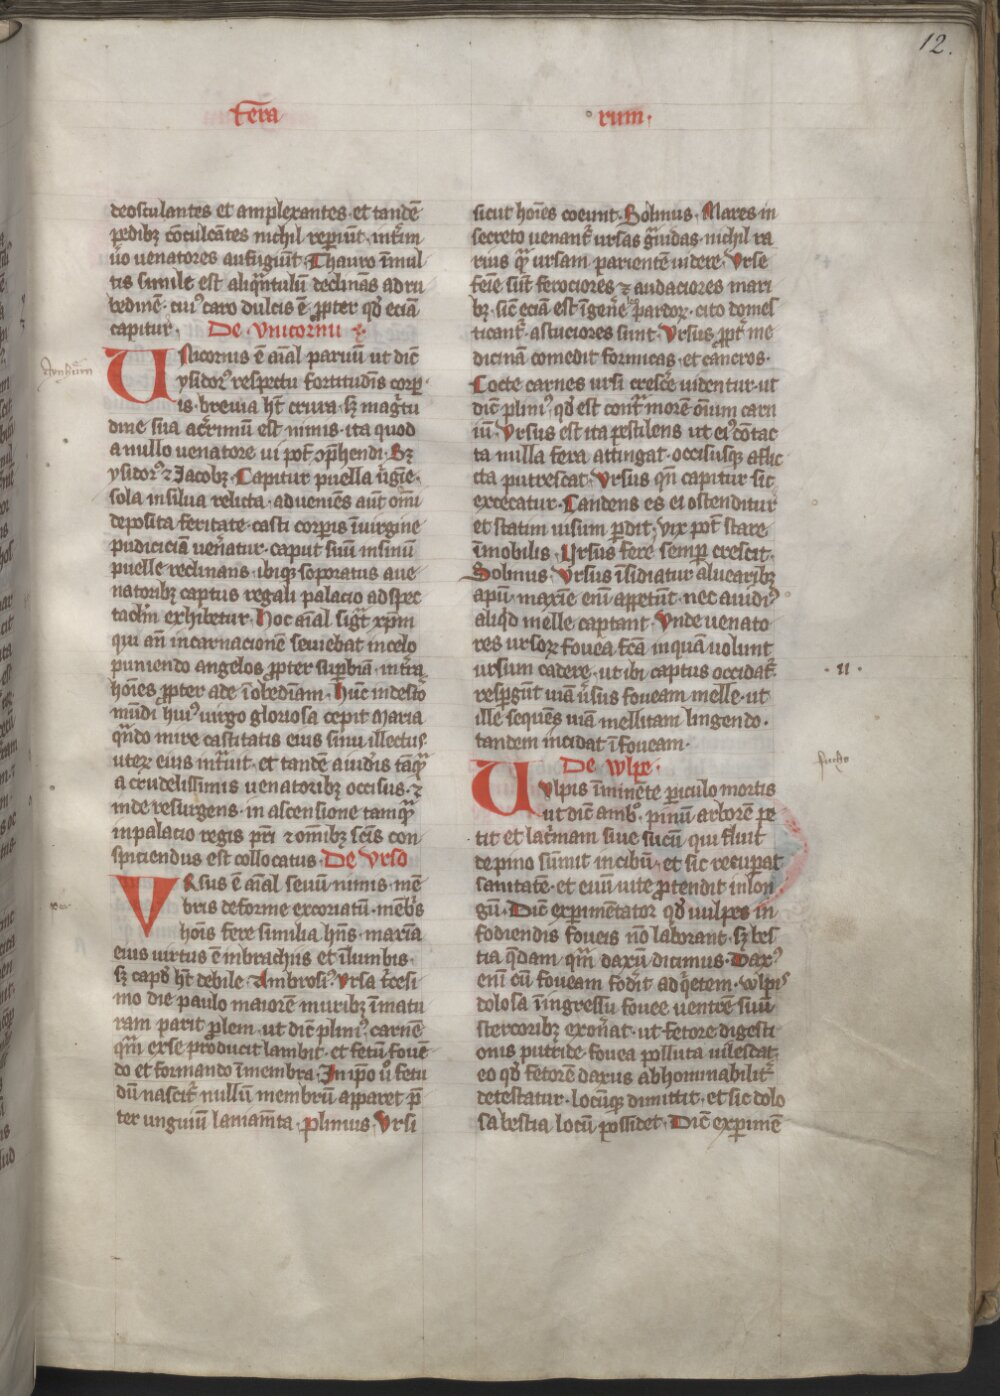 12.
fera
rum.
deosculantes et amplexantes et tandē
pedibꝫ cōculcātes nichil reperiūt. intīm
u̓o uenatores aufugiūt. Thauro inmul
tis simile est aliqn̄tulū declinās ad ru
bedinē. cuiꝰ caro dulcis ē ꝓpter qd̓ eciā
capitur. De Vnicornu
Unicornis ē aīal paruū ut dic̄
ysidorꝰ respectu fortitudīs corꝑ
is. breuia hꝫ crura. sꝫ mag̓tu
dine sua acrimū est nimis. ita quod
a nullo uenatore ui pōt op̄hendi. Sꝫ
ysidorꝰ ⁊ Jacobꝫ. Capitur puella ūgīe
sola in silua relicta. adueniēs aūt om̄i
deposita feritate. casti corꝑis ī uirgine
pudiciciā uen̄atur. caput suū in sinū
puelle reclinans. ibiqꝫ soporatus a ue
natoribꝫ captus regali palacio ad spec
taclm̄ exhibetur. Hoc aīal sig̓t xpm̄
qui an̄ incarnacionem seuiebat in celo
puniendo angelos ꝓpter suꝑbiā. int̄ra
hoīes ꝓpter ade īobediam. Hūc in desto̓
mūdi huiꝰ uirgo gloriosa cepit Maria
qn̄do mire castitatis eius sinu illectus.
uterū eius int̓uit. et tandē a iud̓is taq̓ꝫ
a crudelissimis uenatoribꝫ occisus. ⁊
inde resurgens. in ascensione tamq̓ꝫ
in palacio regis pr̄i ⁊ om̄ibꝫ sc̄is con
spiciendus est collocatus. De Urso
Vrsus ē aīal seuū nimis. mē
bris deforme excoriatū. mēb̓s
hoīs fere similia hn̄s. maxīa
eius uirtus ē in brachiis et ī lumbis.
sꝫ capd̓ hꝫ debile. Ambrosiꝰ. Ursa t̓cesi
mo die paulo maiorē muribꝫ īmatu
ram parit ꝓlem. ut dic̄ pliniꝰ. carnē
qm̄ ex se producit lambit. et fetū fouē
do et formando ī membra. In ip̄o u̓o fetu
dū nascit̓ nullū membrū apparet p̄
ter unguiū laniam̄ta. plinius. Vrsi
sicut hoīes coeunt. Solinus. Mares in
secreto uenant̓ ursas grauidas. nichil ra
rius q̓ꝫ ursam parientem uidere. Urse
feīe sūt ferociores ⁊ audaciores mari
bꝫ. sic̄ eciā est ī gen̄e pardorꝫ. cito domes
ticant̓. astuciores sunt. Vrsus ꝓpt̓ me
dicinā comedit formicas. et cancros.
Cocte carnes ursi cresc̄e uidentur. ut
dic̄ pliniꝰ. qd̓ est cont̓ morē om̄ium carn
iū. Vrsus est ita pestilens ut eiꝰ cōtac
ta nulla fera attingat. occisusqꝫ aflic
cta putrescat. Vrsus qn̄ capitur sic
excecatur. Candens es ei ostenditur
et statim uisum ꝑdit. vix pōt stare
īmobilis. Ursus fere semꝑ crescit.
Solinus. Vrsus īsidiatur aluearibꝫ
apū. maxīe enī appetūt. nec auidiꝰ
aliqd̓ melle captant. Vnde uenato
res ursorꝫ fouea fc̄a in quā uolunt
ursum cadere. ut ibi captus occidat̓.
resꝑgūt uiā u̓sus foueam melle. ut
ille sequēs uiā mellitam lingendo.
tandem incidat ī foueam.
De wlpe.
Vulpis īminēte ꝑiculo mortis
ut dic̄ amb̓o. pinū arborē pe
tit et lac̓mam siue sucū qui fluit
de pino sūmit in cibū. et sic recuꝑat
sanitatē. et euū uite ꝓtendit in lon
gū. Dic̄ exꝑimētator qd̓ uulpes in
fodiendis foueis nō laborant. sꝫ bes
tia qdam qm̄ daxū dicimus. Daxꝰ
enī cū foueam fod̓it ad q̓etem. wlpiˢ
dolosa ī ingressu fouee uentrē suū
stercoribꝫ exon̄at. ut fetore digesti
onis putride fouea polluta uilescat.
eo qd̓ fetorē daxus abhominabilit̓
detestatur. locūqꝫ dimittit. et sic dolo
sa bestia locū possidet. Dic̄ exꝑimē
.11.
fuchs